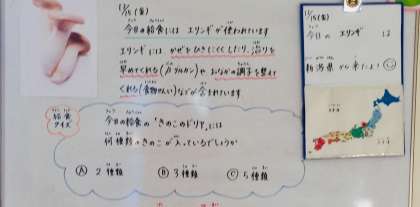 11/15(金)
今日の給食には エリンギ が使われています
エリンギには、かぜをひきにくくしたり、治りを
早めてくれる(βグルカン)や おなかの調子を整えて
くれる(食物せんい)などが 含まれています
給食
クイズ
今日の給食の「きのこのドリア」には
何種類のきのこが入っているでしょうか
Ⓐ 2種類 Ⓑ 3種類 Ⓒ 5種類
11/15(金)
今日の エリンギ は
新潟県 から来たよ!